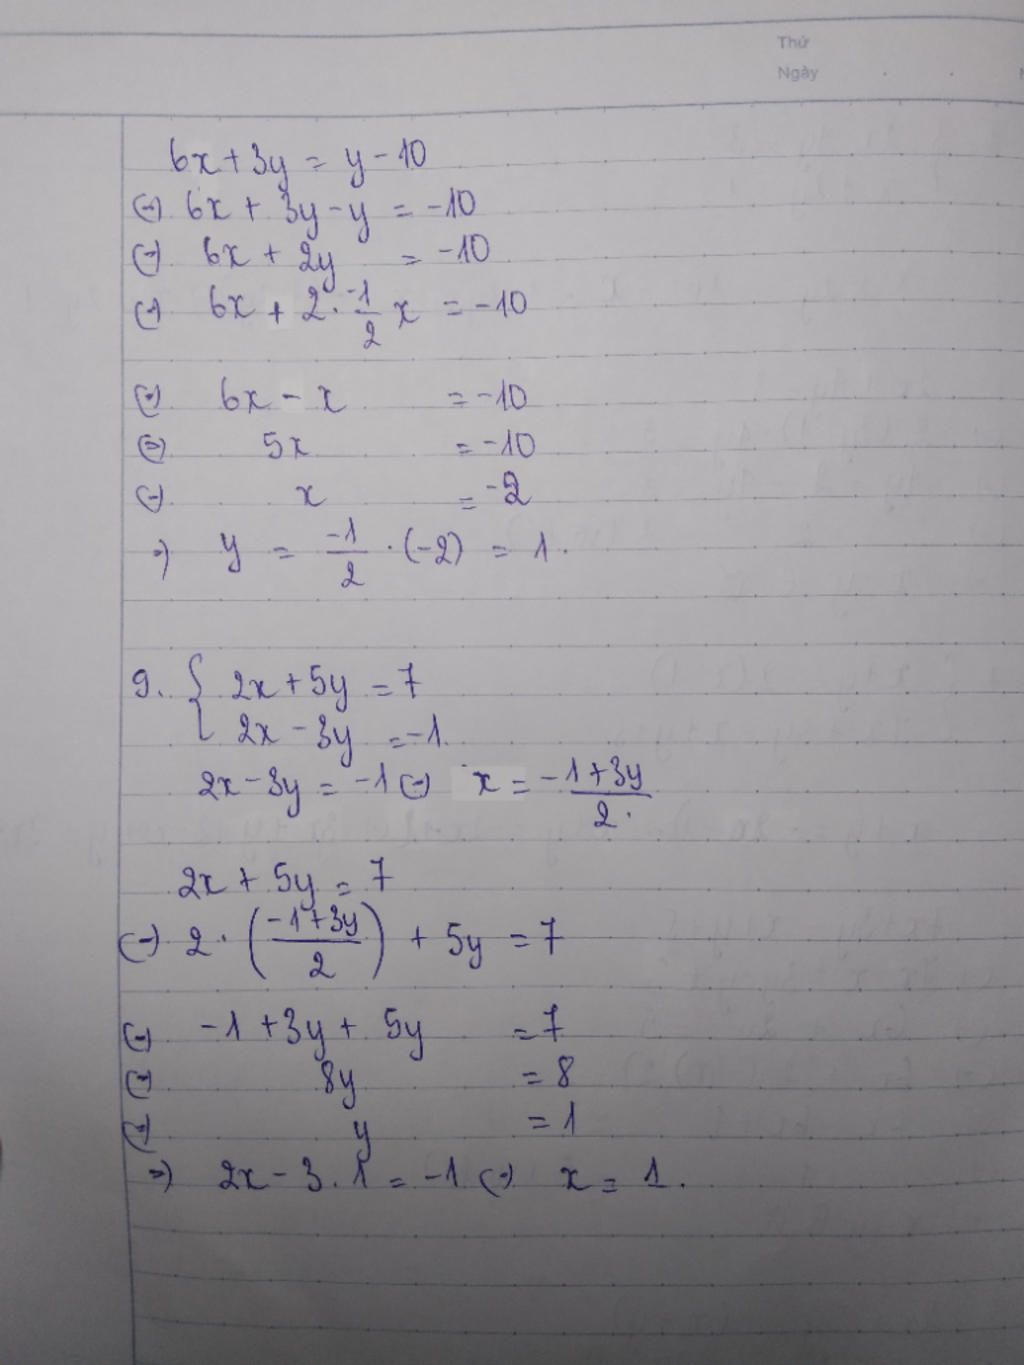 Thứ
Ngày
6x + 3y = y - 10
(=) 6x + 3y - y = -10
(=) 6x + 2y = -10
(=) 6x + 2 . -1/2 x = -10
(=) 6x - x = -10
(=) 5x = -10
(=) x = -2
=) y = -1/2 . (-2) = 1.
9. { 2x + 5y = 7
2x - 3y = -1
2x - 3y = -1 (=) x = -1+3y/2.
2x + 5y = 7
(=) 2 . (-1+3y/2) + 5y = 7
(=) -1 + 3y + 5y = 7
(=) 8y = 8
(=) y = 1
=) 2x - 3.1 = -1 (=) x = 1.